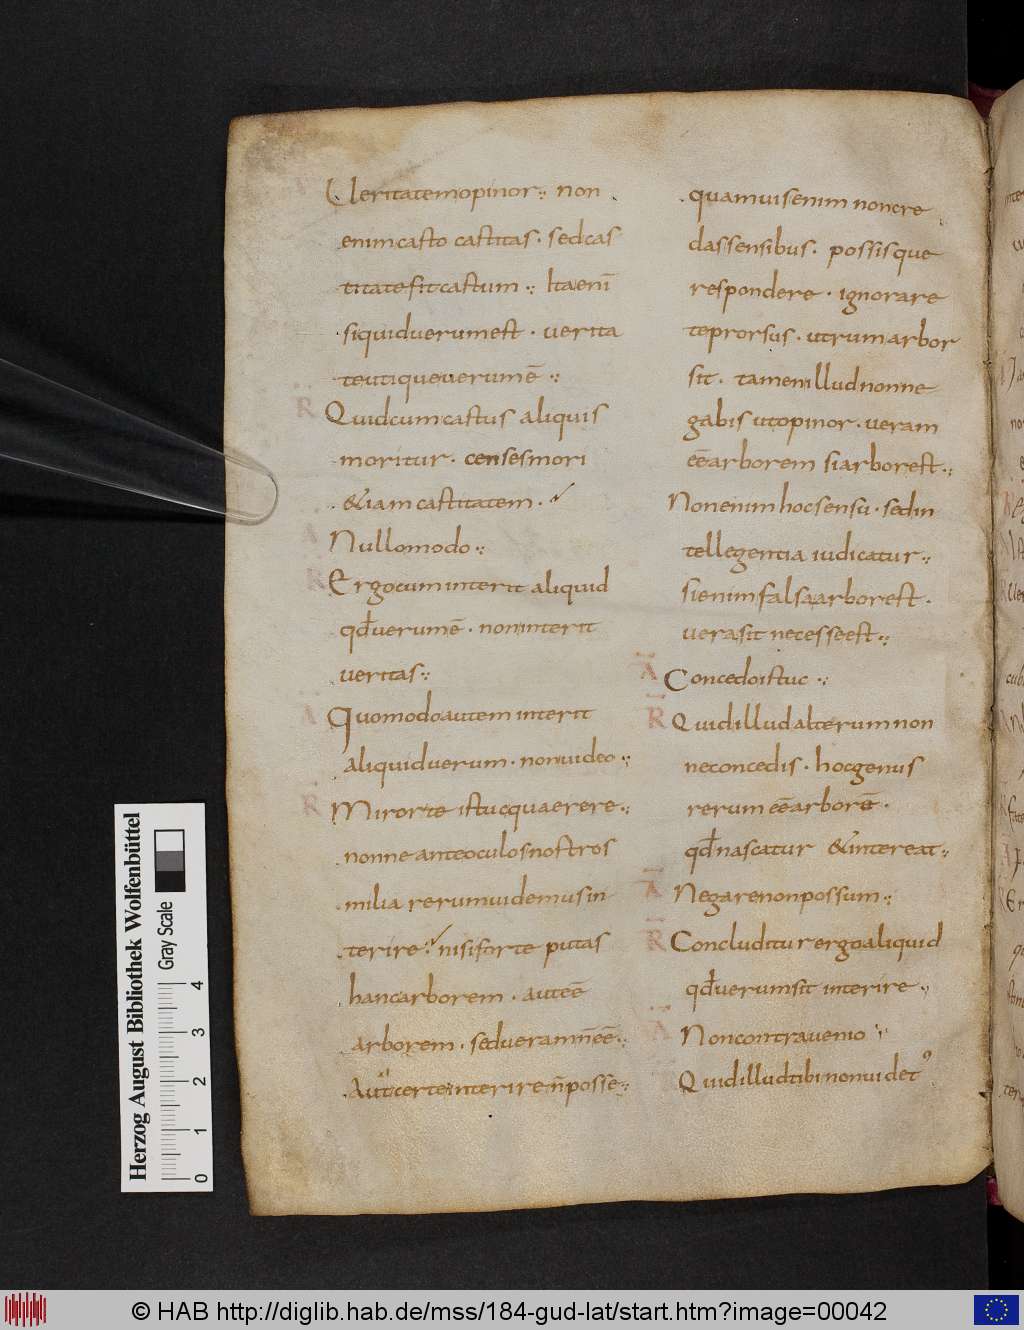 Ueritatem opinor :· non
enim casto castitas · sed cas
titate fit castum :· Ita enī
si quid verum est · verita
te utique verum ē :·
R Quid cum castus aliquis
moritur · censes mori
& iam castitatem ·
A Nullo modo :·
R Ergo cum interit aliquid
qđ verum ē · non interit
veritas :·
A Quomodo autem interit
aliquid verum · non video :·
R Miror te istuc quaerere :·
nonne ante oculos nostros
milia rerum videmus in
terire · nisi forte putas
hanc arborem · aut eē
arborem · sed veram n̄ eē :·
Aut certe interire n̄ posse :·
quamvis enim non cre
das sensibus · possisque
respondere · ignorare
te prorsus · utrum arbor
sit · tamen illud non ne
gabis ut opinor · veram
eē arborem si arbor est :·
Non enim hoc sensu · sed in
tellegentia iudicatur :·
si enim falsa arbor est ·
vera sit necesse est :·
A Concedo istuc :·
R Quid illud alterum non
ne concedis · hoc genus
rerum eē arborē ·
qđ nascatur & intereat :·
A Negare non possum :·
R Concluditur ergo aliquid
qđ verum sit interire ·
A Non contravenio
Quid illud tibi non videt⁹
Herzog August Bibliothek Wolfenbüttel
Gray Scale
0 1 2 3 4
© HAB http://diglib.hab.de/mss/184-gud-lat/start.htm?image=00042